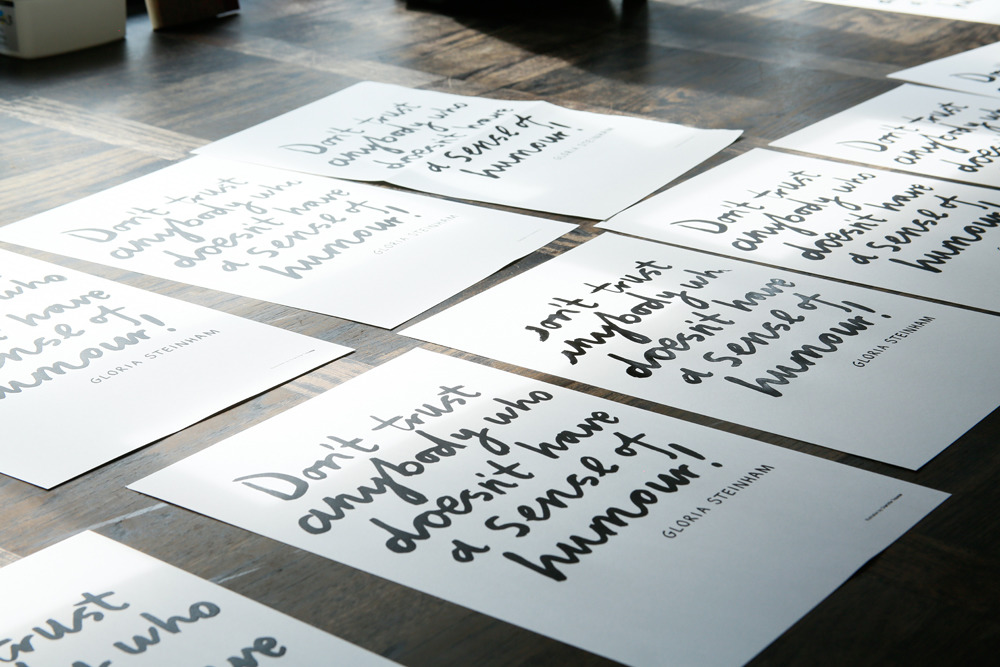 Don't trust
anybody who
doesn't have
a sense of
humour!
GLORIA STEINHAM
Don't trust
anybody who
doesn't have
a sense of
humour!
GLORIA STEINHAM
who
have
sense of
humour!
GLORIA STEINHAM
Don't trust
anybody who
doesn't have
a sense of
humour!
GLORIA STEINHAM
Don't trust
anybody who
doesn't have
a sense of
humour!
Don't trust
anybody
doesn't
on't trust
anybody wh
doesn't have
a sense of
humour!
GLORIA STEINHAM
Don't trust
anybody who
doesn't have
a sense of
humour!
GLORIA STEINHAM
trust
who